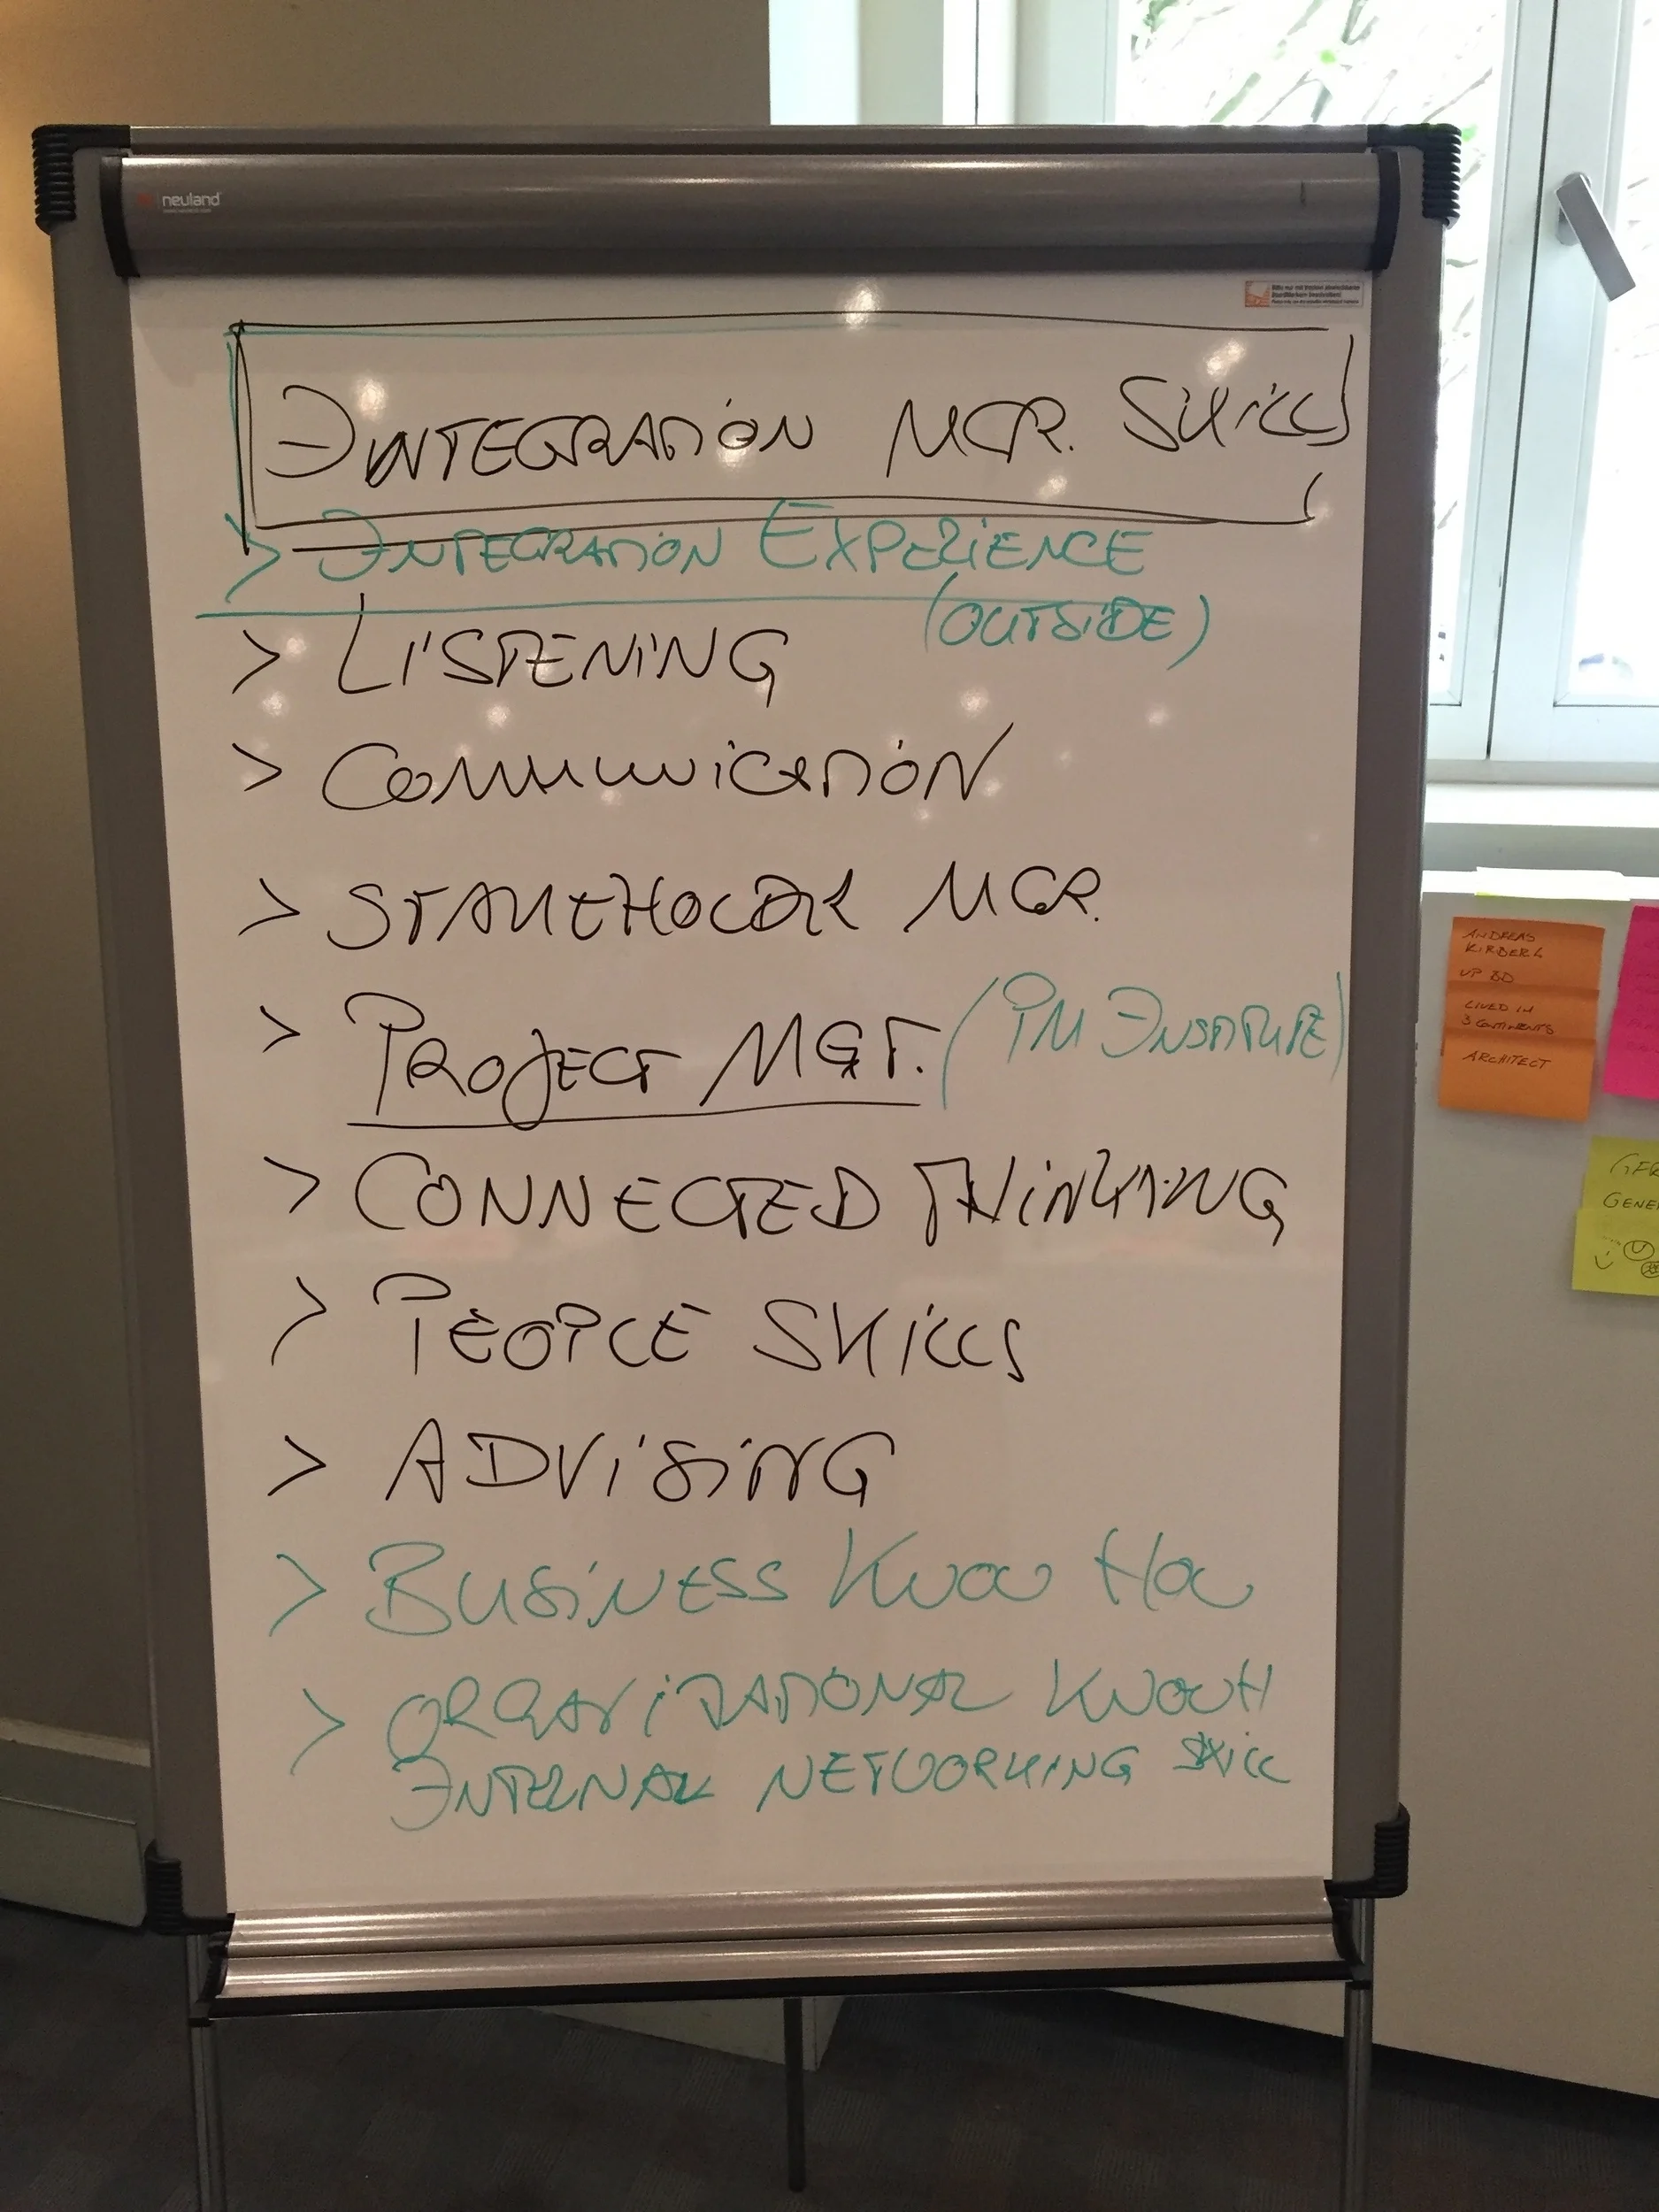 neuland
INTEGRATION MGR. SKILLS
> INTEGRATION EXPERIENCE
(OUTSIDE)
> LISTENING
> COMMUNICATION
> STAKEHOLDER MGR.
> PROJECT MGT. (PM INSTITUTE)
> CONNECTED THINKING
> PEOPLE SKILLS
> ADVISING
> BUSINESS KNOW HOW
> ORGANIZATIONAL KNOWH
INTERNAL NETWORKING SKILL
ANDREAS
KIRBERG
VP BD
LIVED IN
3 CONTINENTS
ARCHITECT
GENE